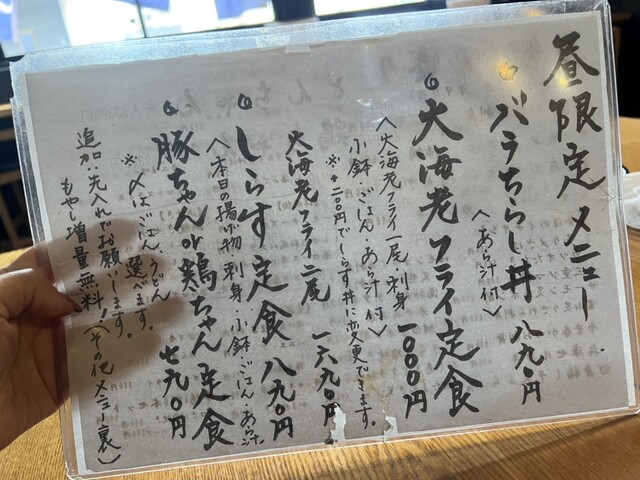 昼限定メニュー
◎バラちらし丼 八九〇円
〈あら汁付〉
◎大海老フライ定食 一〇〇〇円
〈大海老フライ一尾・刺身
小鉢・ごはん・あら汁付〉
※+二〇〇円でしらす丼に変更できます。
大海老フライ二尾 一六九〇円
◎しらす定食 八九〇円
〈本日の揚げ物・刺身・小鉢・ごはん・あら汁
◎豚ちゃんor鶏ちゃん定食 七九〇円
※〆はごはん、うどん
選べます。
追加:先入れでお願いします。
もやし増量無料!(その他メニュー裏)